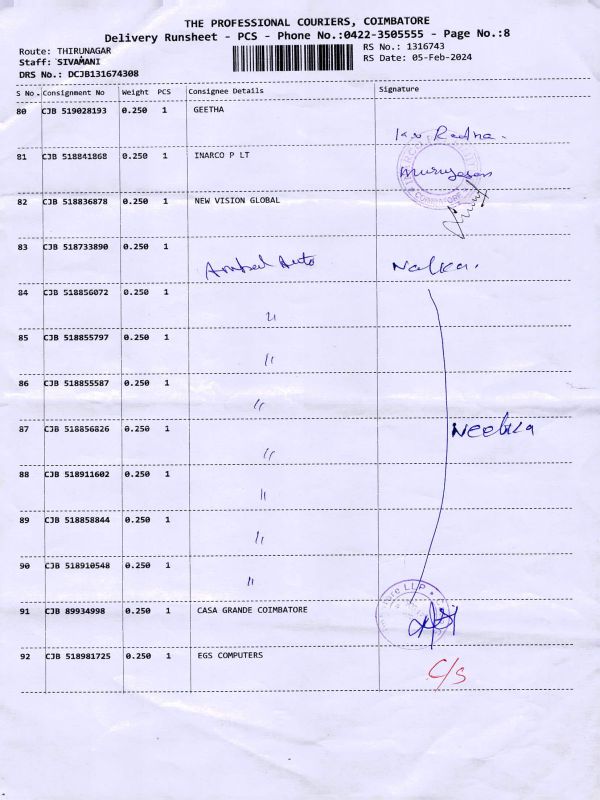 THE PROFESSIONAL COURIERS, COIMBATORE
Delivery Runsheet - PCS - Phone No.:0422-3505555 - Page No.:8
Route: THIRUNAGAR RS No.: 1316743
Staff: SIVAMANI RS Date: 05-Feb-2024
DRS No.: DCJB131674308
S No. Consignment No Weight PCS Consignee Details Signature
80 CJB 519028193 0.250 1 GEETHA
K.v Radha.
81 CJB 518841868 0.250 1 INARCO P LT
Murugesan
COIMBATORE
82 CJB 518836878 0.250 1 NEW VISION GLOBAL
83 CJB 518733890 0.250 1
Ambal Auto
84 CJB 518856072 0.250 1
"
85 CJB 518855797 0.250 1
"
86 CJB 518855587 0.250 1
"
87 CJB 518856826 0.250 1
"
88 CJB 518911602 0.250 1
"
89 CJB 518858844 0.250 1
"
90 CJB 518910548 0.250 1
"
91 CJB 89934998 0.250 1 CASA GRANDE COIMBATORE
LLP
92 CJB 518981725 0.250 1 EGS COMPUTERS
C/S